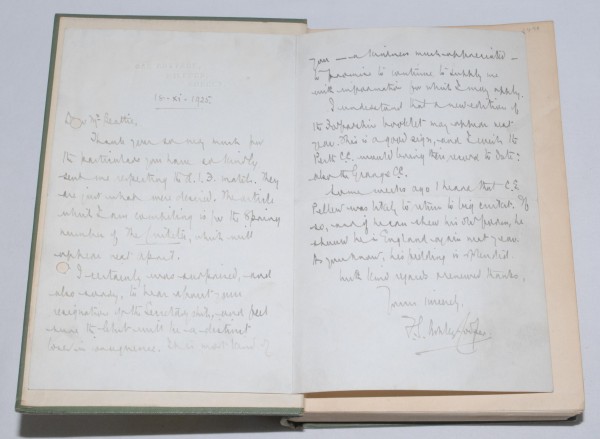 16-XI-1925
Dear Mr Beattie,
Thank you so very much for
the particulars you have so kindly
sent me respecting the match. They
are just what were desired. The article
which I am compiling is for the Spring
number of the which will
appear next April.
I certainly was surprised, and
also sorry, to hear about your
resignation and feel
sure the Club will be a distinct
loser in consequence. It is most kind of
you — a kindness much appreciated —
to promise to continue to supply me
with information for which I may apply.
I understand that a new edition of
the Forfarshire booklet may appear next
year. This is a good sign, and I wish the
Perth C.C. would bring their record to date:
also the Grange C.C.
Some weeks ago I heard that C.E.
Pellew was likely to return to big cricket. If
so, and if he can show his old form, he
should be in England again next year.
As you know, his fielding is splendid.
With kind regards & renewed thanks,
Yours sincerely,
F.S. Ashley-Cooper